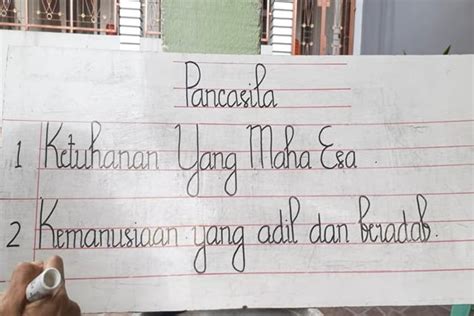 Pancasila
1 Ketuhanan Yang Maha Esa.
2 Kemanusiaan yang adil dan beradab.